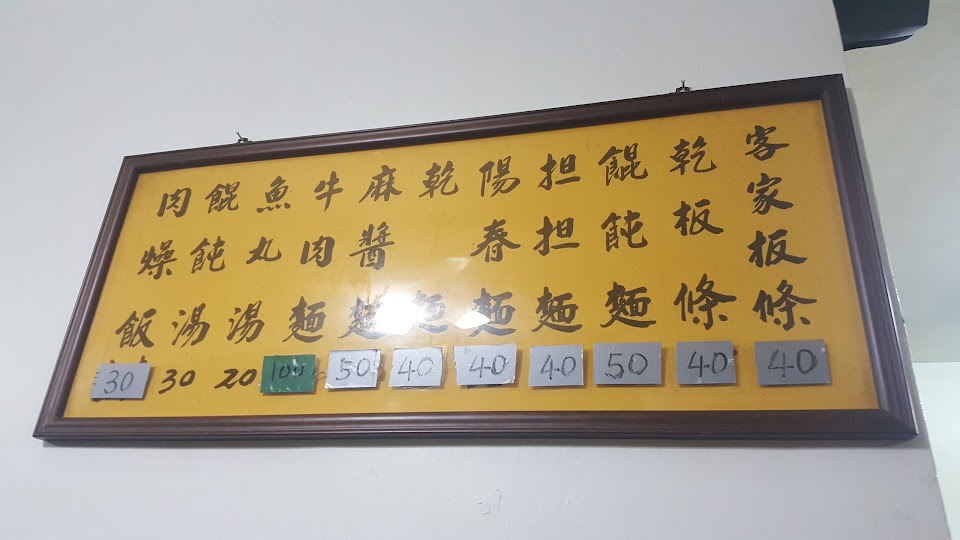 客家板條 40
乾板條 40
餛飩麵 50
担担麵 40
陽春麵 40
乾麵 40
麻醬麵 50
牛肉麵 100
魚丸湯 20
餛飩湯 30
肉燥飯 30